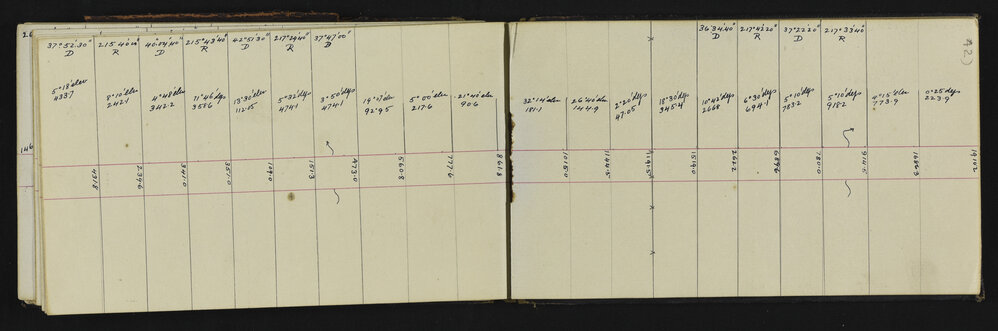 26
37°52'30" 215°40'20" 40°54'40" 215°43'40" 42°51'30" 217°29'40" 37°47'00"
D R D R D R B
5°18'elev 8°10'elev 4°48'elev 11°46'dep 13°30'elev 5°32'dep 3°50'dep 19°07'elev 5°00'elev 21°40'elev
433.7 242.1 342.2 358.6 112.15 474.1 474.1 92.95 217.6 90.6
146
435.8 234.6 341.0 351.0 109.0 151.3 473.0 560.8 777.6 861.8
42)
36°34'40" 217°42'20" 37°22'20" 217°33'40"
D R D R
32°14'elev 26°40'elev 2°20'dep 18°30'dep 10°42'dep 6°30'dep 5°10'dep 5°10'dep 4°15'elev 0°25'dep
181.1 144.9 47.05 345.4 266.8 694.1 783.2 918.2 773.9 223.9
1015.0 1144.5 1191.5 1519.0 262.2 689.6 780.0 914.5 1686.3 1910.2